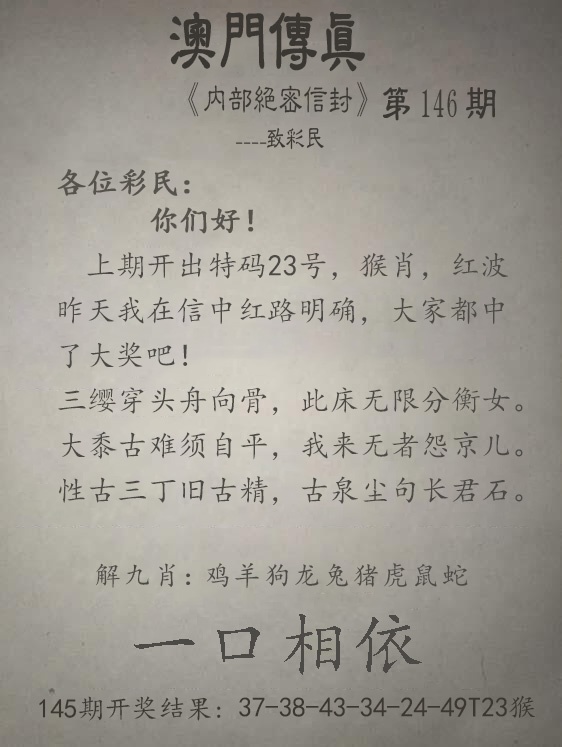 澳門傳眞
《内部絕密信封》第146期
----致彩民
各位彩民：
你们好！
上期开出特码23号，猴肖，红波
昨天我在信中红路明确，大家都中
了大奖吧！
三缨穿头舟向骨，此床无限分衡女。
大黍古难须自平，我来无者怨京儿。
性古三丁旧古精，古泉尘句长君石。
解九肖：鸡羊狗龙兔猪虎鼠蛇
一口相依
145期开奖结果：37-38-43-34-24-49T23猴